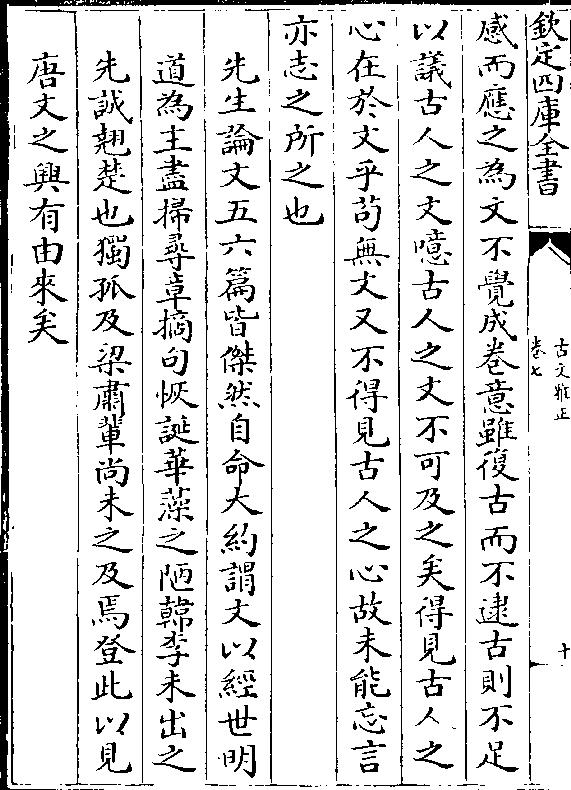 欽定四庫全書
古文雅正
卷七
十
感而應之為文不覺成卷意雖復古而不逮古則不足
以議古人之文噫古人之文不可及之矣得見古人之
心在於文乎茍無文又不得見古人之心故未能忘言
亦志之所之也
先生論文五六篇皆傑然自命大約謂文以經世明
道為主盡掃尋章摘句恢誕華藻之陋韓李未出之
先誠翹楚也獨孤及梁肅輩尚未之及焉登此以見
唐文之興有由來矣